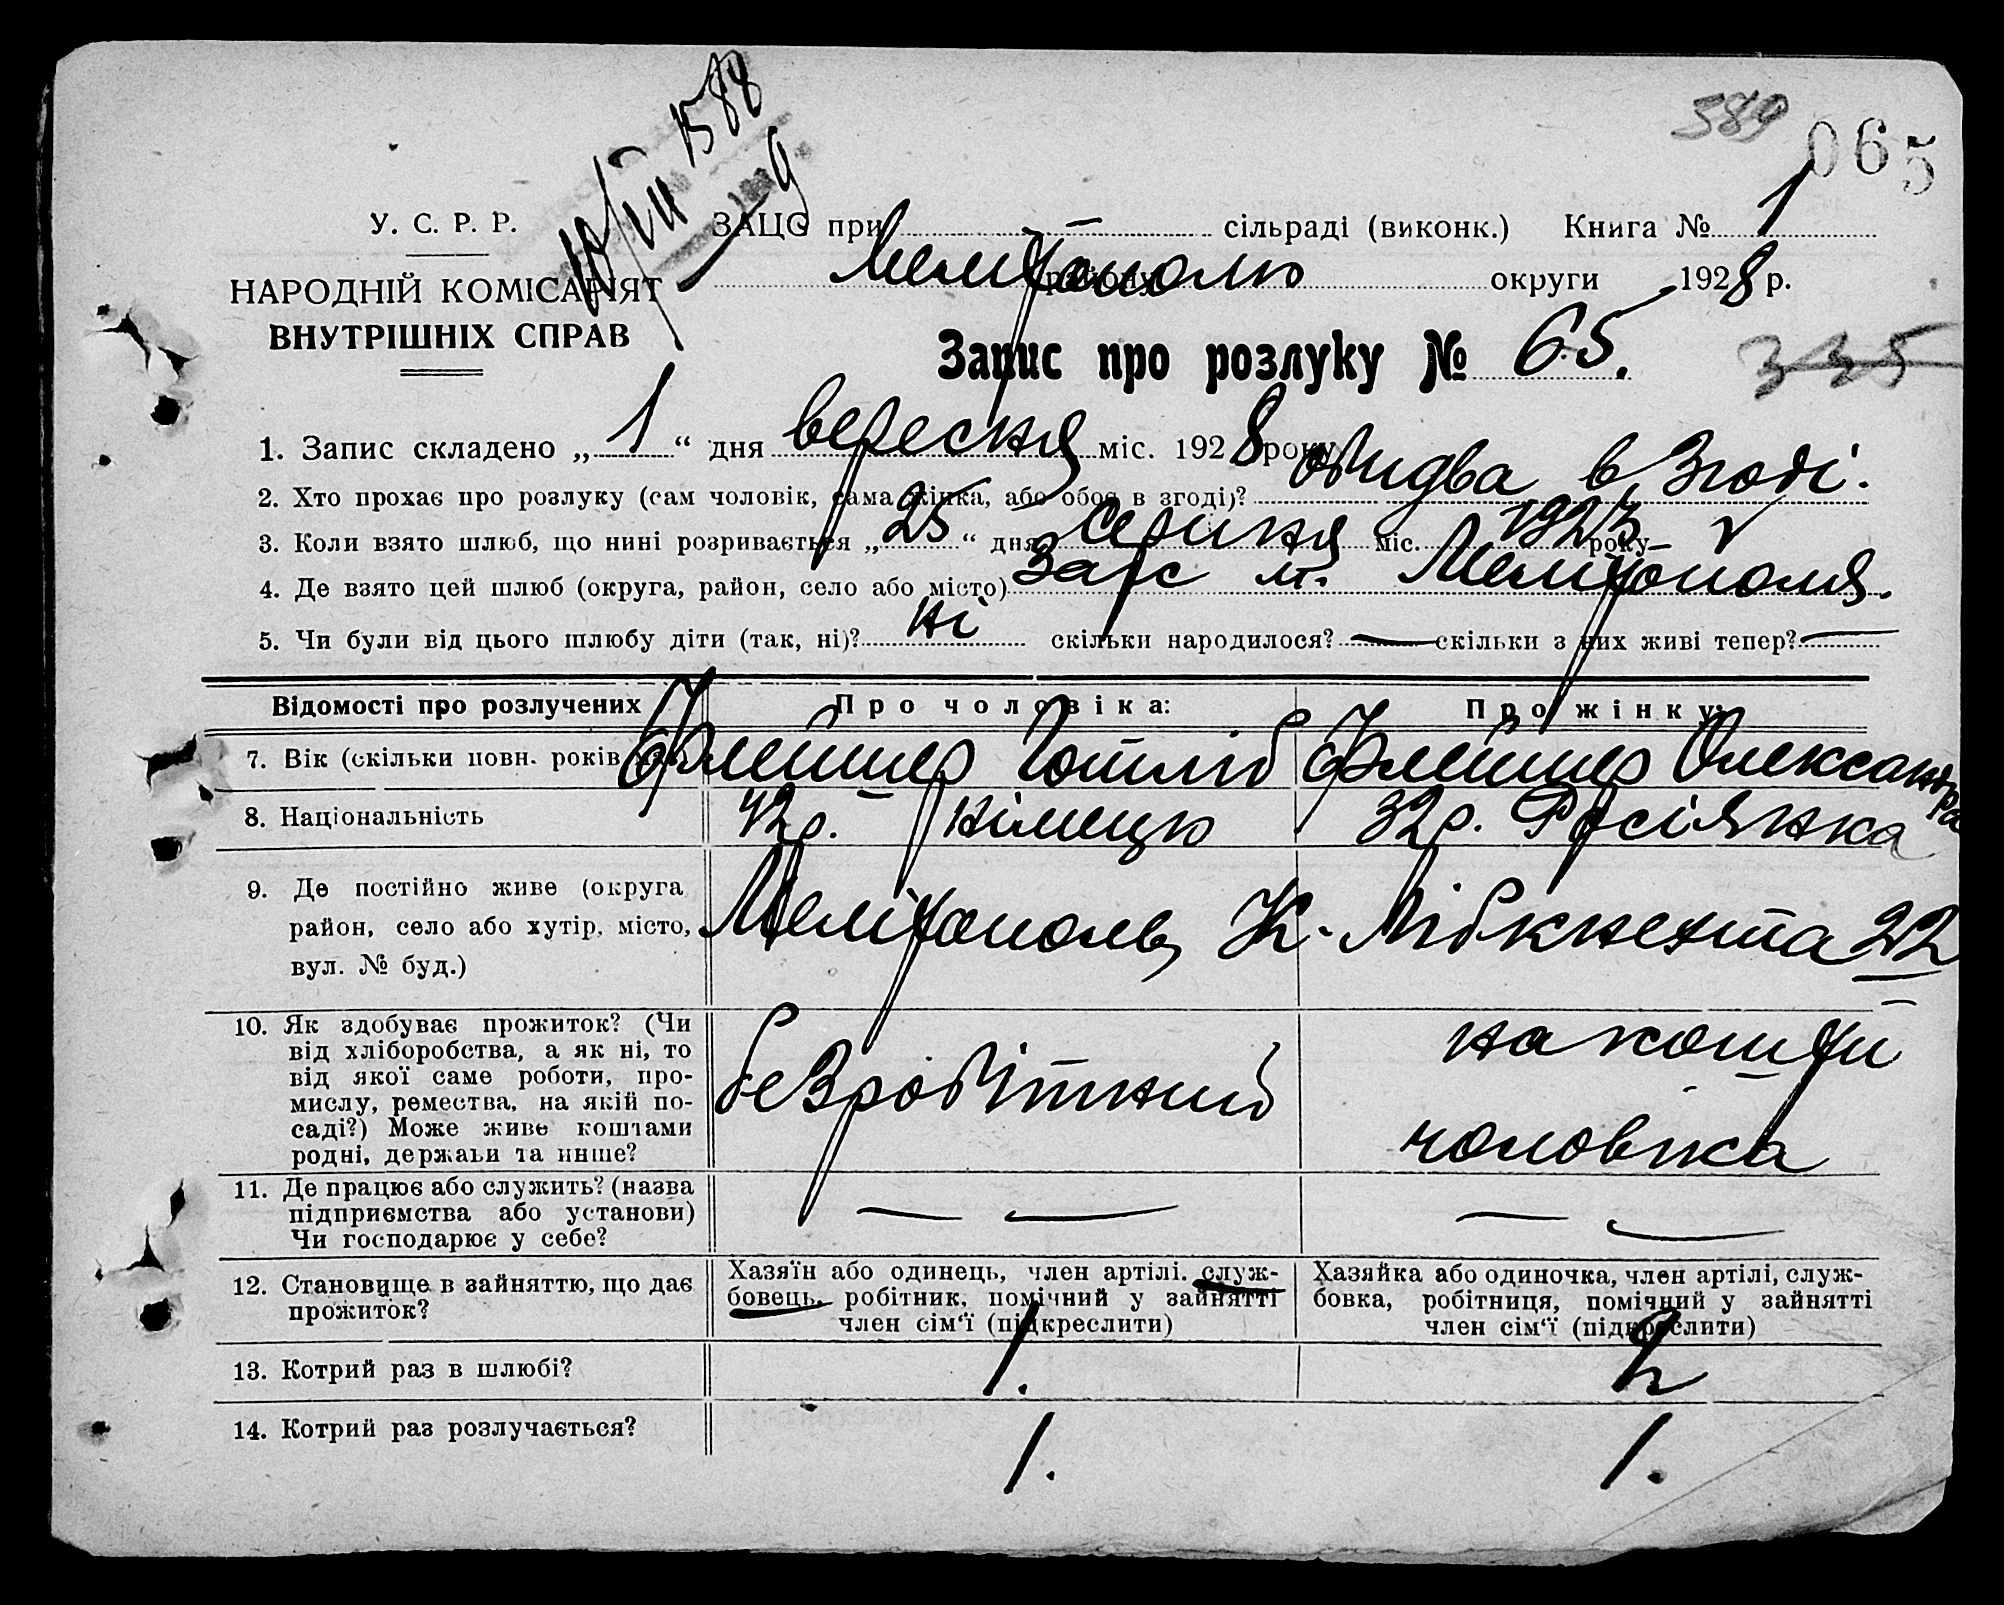 589 065
У. С. Р. Р.
ЗАЦС при сільраді (виконк.) Книга № 1
НАРОДНІЙ КОМІСАРІЯТ
ВНУТРІШНІХ СПРАВ
Мелітополю району округи 1928 р.
Запис про розлуку № 65.
1. Запис складено „ 1 “ дня вересня міс. 1928 року
2. Хто прохає про розлуку (сам чоловік, сама жінка, або обоє в згоді)? обидва в згоді.
3. Коли взято шлюб, що нині розривається „ 25 “ дня серпня міс. 1923 року
4. Де взято цей шлюб (округа, район, село або місто) Загс м. Мелітополя.
5. Чи були від цього шлюбу діти (так, ні)? ні скільки народилося? — скільки з них живі тепер? —
Відомості про розлучених Про чоловіка: Про жінку:
Флейшер Готліб Флейшер Олександра
7. Вік (скільки повн. років
8. Національність 42р. німець 32р. Росіянка
9. Де постійно живе (округа район, село або хутір, місто, вул. № буд.) Мелітополь, К. Лібкнехта 22
10. Як здобуває прожиток? (Чи
від хліборобства, а як ні, то
від якої саме роботи, про-
мислу, ремества, на якій по-
саді?) Може живе коштами
родні, держави та инше?
безробітний
на кошти
чоловіка
11. Де працює або служить? (назва
підприємства або установи)
Чи господарює у себе?
— — — —
12. Становище в зайняттю, що дає
прожиток?
Хазяїн або одинець, член артілі, служ-
бовець, робітник, помічний у зайнятті
член сім'ї (підкреслити)
Хазяйка або одиночка, член артілі, служ-
бовка, робітниця, помічний у зайнятті
член сім'ї (підкреслити)
13. Котрий раз в шлюбі? 1. 2
14. Котрий раз розлучається? 1. 1.